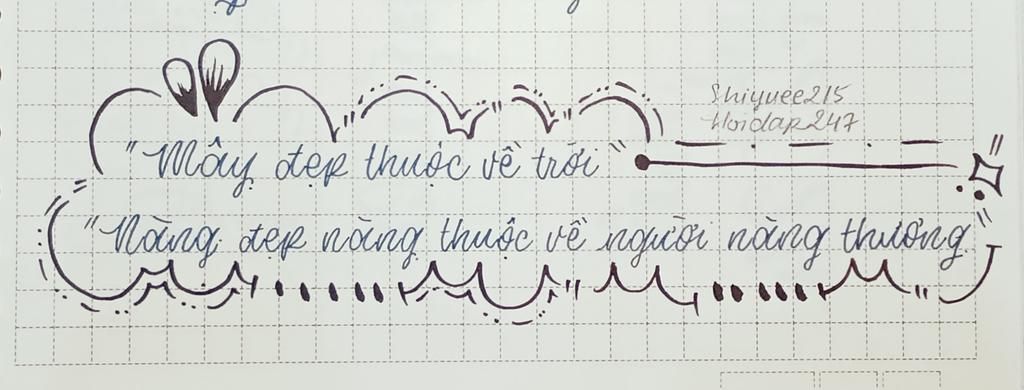 Shiyuee215
Hoidap247
"Mây đẹp thuộc về trời"
"Nàng đẹp nàng thuộc về người nàng thương